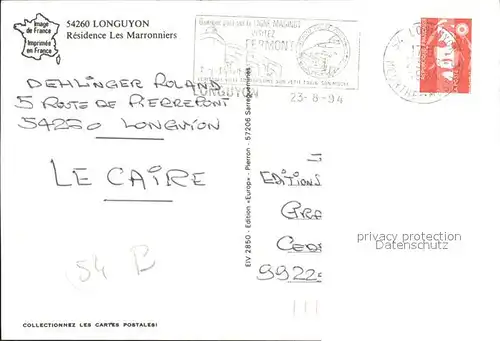 Image
de France
Imprimée
en France
54260 LONGUYON
Résidence Les Marronniers
LIGNE MAGINOT
VISITEZ
FERMONT
LONGUYON
23-8-94
DEHLINGER ROLAND
5 ROUTE DE PIERREPONT
54260 LONGUYON
LE CAIRE
54 P
EIV 2850 - Edition «Europ» - Pierron - 57206 Sarreguemines
EDITIONS
GRA
CEDE
9922
privacy protection
Datenschutz
COLLECTIONNEZ LES CARTES POSTALES!